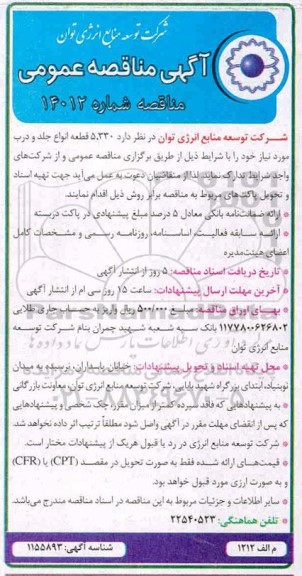 شرکت توسعه منابع انرژی توان
آگهی مناقصه عمومی
مناقصه شماره ۱۴۰۱۲
شرکت توسعه منابع انرژی توان در نظر دارد ۵,۳۳۰ قطعه انواع جلد و درب
مورد نیاز خود را با شرایط ذیل از طریق برگزاری مناقصه عمومی و از شرکت‌های
واجد شرایط تدارک نماید. لذا از متقاضیان دعوت به عمل می‌آید جهت تهیه اسناد
و تحویل پاکت‌های مربوط به مناقصه برابر روش ذیل اقدام نمایند.
• ارائه ضمانتنامه بانکی معادل ۵ درصد مبلغ پیشنهادی در پاکت دربسته
• ارائه سابقه فعالیت، اساسنامه، روزنامه رسمی و مشخصات کامل
اعضای هیئت‌مدیره
• تاریخ دریافت اسناد مناقصه: ۵ روز از انتشار آگهی
• آخرین مهلت ارسال پیشنهادات: ساعت ۱۵ روز سی ام از انتشار آگهی
• بهای اوراق مناقصه: مبلغ ۵۰۰/۰۰۰ ریال واریز به حساب جاری طلایی
۱۱۷۷۸۰۰۶۲۶۸۰۲ بانک سپه شعبه شهید چمران بنام شرکت توسعه
منابع انرژی توان
• محل تهیه اسناد و تحویل پیشنهادات: خیابان پاسداران، نرسیده به میدان
نوبنیاد، ابتدای بزرگراه شهید بابایی، شرکت توسعه منابع انرژی توان، معاونت بازرگانی
• به پیشنهادهایی که فاقد سپرده کمتر از میزان مقرر، چک شخصی و پیشنهادهایی
که پس از انقضای مهلت مقرر در آگهی واصل شود مطلقاً ترتیب اثر داده نخواهد شد.
• شرکت توسعه منابع انرژی در رد یا قبول هریک از پیشنهادات مختار است.
• قیمت‌های ارائه شده فقط به صورت تحویل در مقصد (CPT) یا (CFR)
و به صورت ارزی مورد قبول خواهد بود.
• سایر اطلاعات و جزئیات مربوط به این مناقصه در اسناد مناقصه مندرج می‌باشد.
• تلفن هماهنگی: ۲۲۵۴۰۵۲۳
م الف ۱۲۱۲
شناسه آگهی: ۱۱۵۵۸۹۳